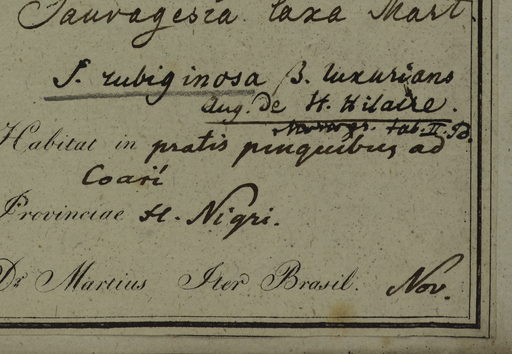 Sauvagesia laxa Mart.
S. rubiginosa β. luxurians
Aug. de St. Hilaire.
tab. II. B.
Habitat in pratis pinguibus ad
Coari
Provinciae R. Nigri.
Dr. Martius Iter Brasil. Nov.